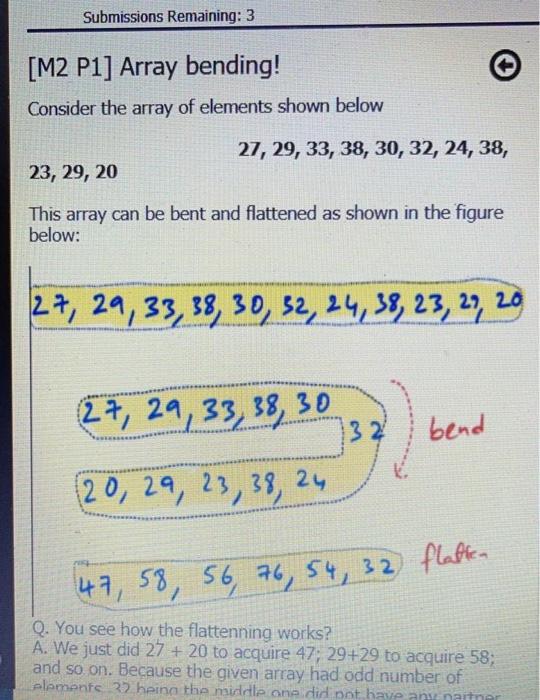 Submissions Remaining: 3
[M2 P1] Array bending!
Consider the array of elements shown below
27, 29, 33, 38, 30, 32, 24, 38,
23, 29, 20
This array can be bent and flattened as shown in the figure
below:
27, 29, 33, 38, 30, 32, 24, 38, 23, 29, 20
27, 29, 33, 38, 30
32
bend
20, 29, 23, 38, 24
47, 58, 56, 76, 54, 32
flatten
Q. You see how the flattenning works?
A. We just did 27 + 20 to acquire 47; 29+29 to acquire 58;
and so on. Because the given array had odd number of
elements 32 being the middle one did not have any partner